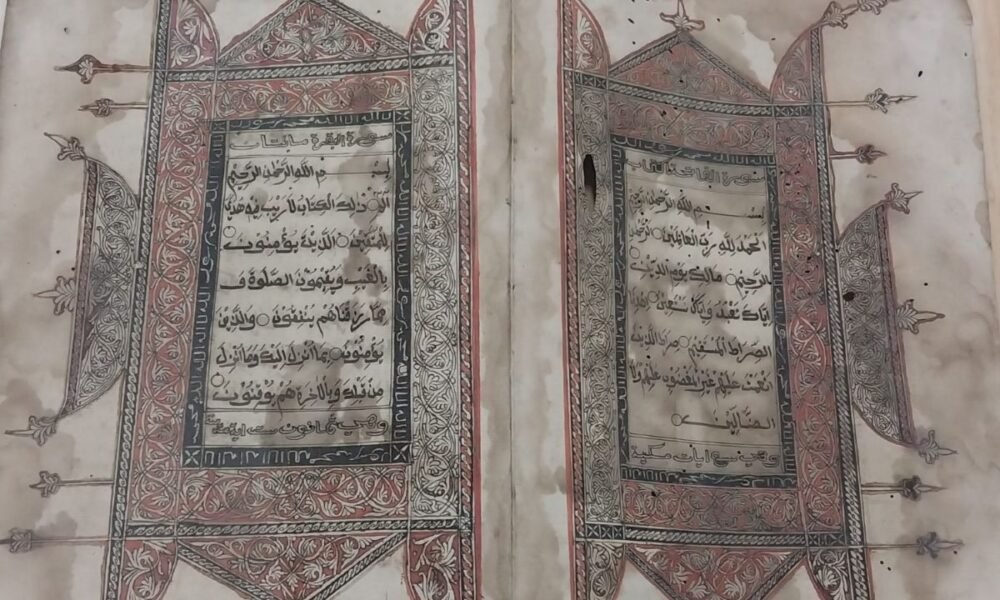 سورة الفاتحة الكتاب
بسم الله الرحمن الرحيم
الحمد لله رب العالمين الرحمن
الرحيم مالك يوم الدين
اياك نعبد واياك نستعين اهدنا
الصراط المستقيم صراط الذين
انعمت عليهم غير المغضوب عليهم ولا
الضالين
وهي سبع ايات مكية
سورة البقرة مايتان
بسم الله الرحمن الرحيم
الم ذلك الكتاب لا ريب فيه هدى
للمتقين الذين يؤمنون
بالغيب ويقيمون الصلوة و
مما رزقناهم ينفقون والذين
يؤمنون بما أنزل اليك وما أنزل
من قبلك وبالاخرة هم يوقنون
وهي ثمانون ست اية